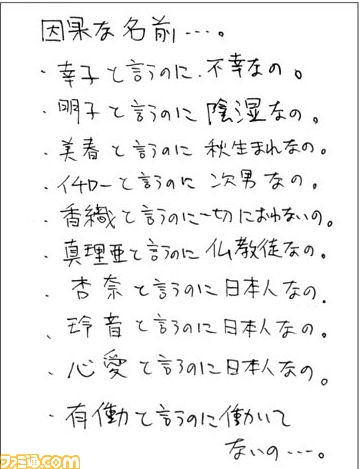 因果な名前…。
・幸子と言うのに、不幸なの。
・明子と言うのに陰湿なの。
・美春と言うのに秋生まれなの。
・イチローと言うのに次男なの。
・香織と言うのに一切におわないの。
・真理亜と言うのに仏教徒なの。
・杏奈と言うのに日本人なの.
・玲音と言うのに日本人なの。
・心愛と言うのに日本人なの。
・有働と言うのに働いて
ないの…。
ファミ通.com